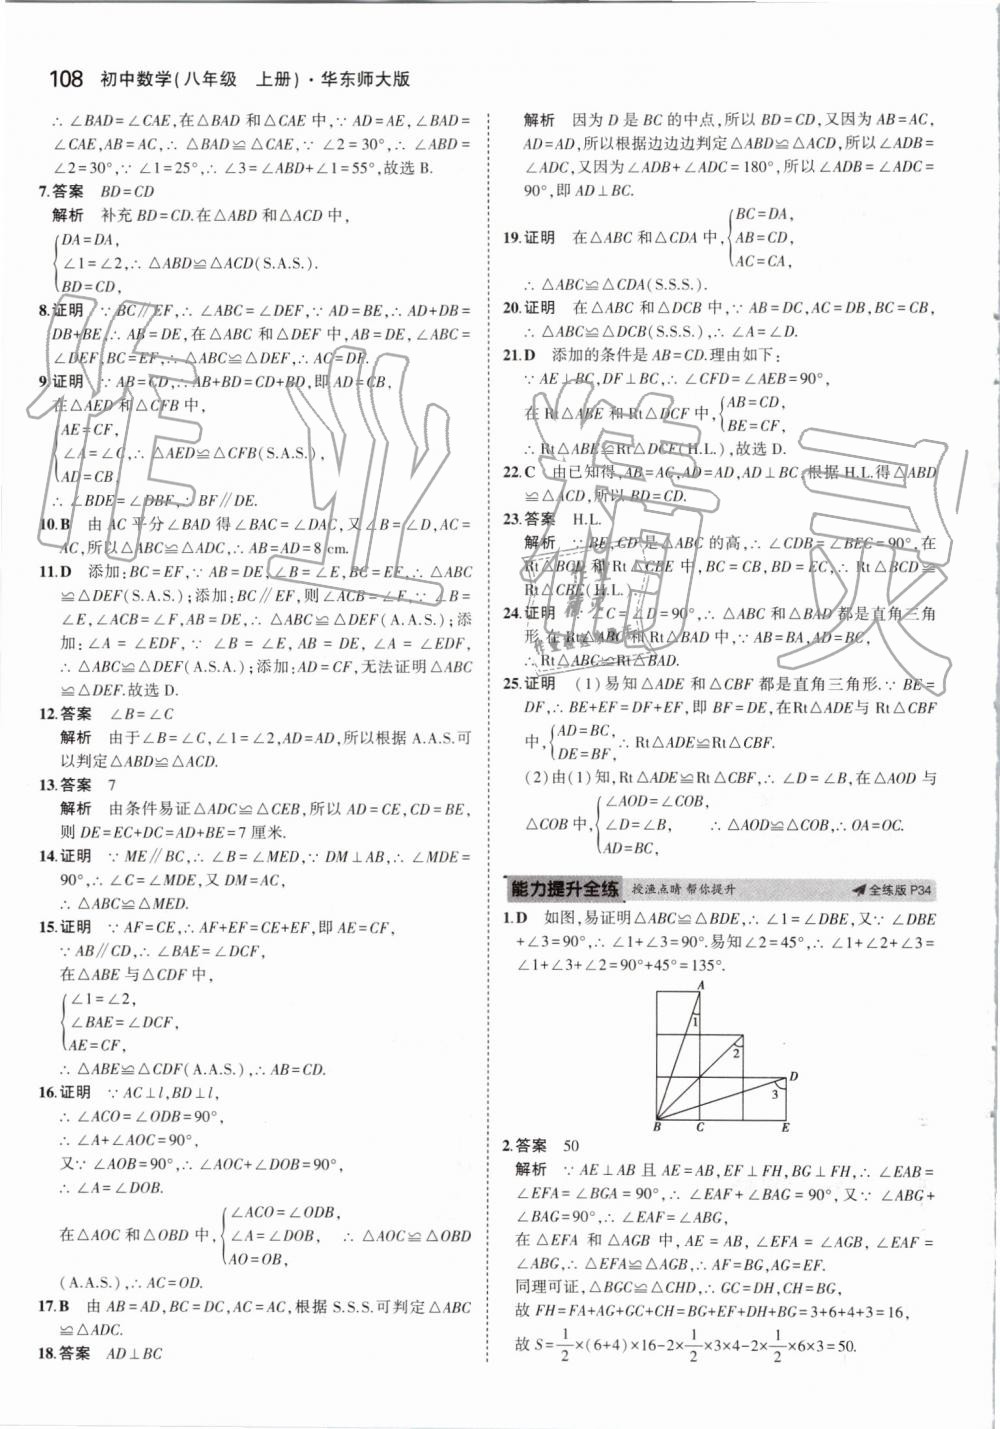 108 初中数学(八年级　上册)·华东师大版
∴ ∠BAD=∠CAE,在△BAD 和△CAE 中,∵ AD=AE,∠BAD=
∠CAE,AB=AC,∴ △BAD≌△CAE,∵ ∠2=30°,∴ ∠ABD=
∠2=30°,∵ ∠1=25°,∴ ∠3=∠ABD+∠1=55°,故选 B.
7.答案　BD=CD
解析　补充 BD=CD.在△ABD 和△ACD 中,
DA=DA,
∠1=∠2,∴ △ABD≌△ACD(S.A.S.).
BD=CD,
8.证明　∵ BC∥EF,∴ ∠ABC=∠DEF,∵ AD=BE,∴ AD+DB=
DB+BE,∴ AB=DE,在△ABC 和△DEF 中,AB=DE,∠ABC=
∠DEF,BC=EF,∴ △ABC≌△DEF,∴ AC=DF.
9.证明　∵ AB=CD,∴ AB+BD=CD+BD,即 AD=CB,
在△AED 和△CFB 中,
AE=CF,
∠A=∠C,∴ △AED≌△CFB(S.A.S.),
AD=CB,
∴ ∠BDE=∠DBF,∴ BF∥DE.
10.B　由 AC 平分∠BAD 得∠BAC=∠DAC,又∠B=∠D,AC=
AC,所以△ABC≌△ADC,∴ AB=AD=8 cm.
11.D　添加:BC=EF,∵ AB=DE,∠B=∠E,BC=EF,∴ △ABC
≌△DEF(S.A.S.);添加:BC∥EF,则∠ACB=∠F,∵ ∠B=
∠E,∠ACB=∠F,AB=DE,∴ △ABC≌△DEF(A.A.S.);添
加:∠A=∠EDF,∵ ∠B=∠E,AB=DE,∠A=∠EDF,
∴ △ABC≌△DEF(A.S.A.);添加:AD=CF,无法证明△ABC
≌△DEF.故选 D.
12.答案　∠B=∠C
解析　由于∠B=∠C,∠1=∠2,AD=AD,所以根据 A.A.S.可
以判定△ABD≌△ACD.
13.答案　7
解析　由条件易证△ADC≌△CEB,所以 AD=CE,CD=BE,
则 DE=EC+DC=AD+BE=7 厘米.
14.证明　∵ ME∥BC,∴ ∠B=∠MED,∵ DM⊥AB,∴ ∠MDE=
90°,∴ ∠C=∠MDE,又 DM=AC,
∴ △ABC≌△MED.
15.证明　∵ AF=CE,∴ AF+EF=CE+EF,即 AE=CF,
∵ AB∥CD,∴ ∠BAE=∠DCF,
在△ABE 与△CDF 中,
∠1=∠2,
∠BAE=∠DCF,
AE=CF,
∴ △ABE≌△CDF(A.A.S.),∴ AB=CD.
16.证明　∵ AC⊥l,BD⊥l,
∴ ∠ACO=∠ODB=90°,
∴ ∠A+∠AOC=90°,
又∵ ∠AOB=90°,∴ ∠AOC+∠DOB=90°,
∴ ∠A=∠DOB.
∠ACO=∠ODB,
在△AOC 和△OBD 中,∠A=∠DOB,　∴ △AOC≌△OBD
AO=OB,
(A.A.S.),∴ AC=OD.
17.B　由 AB=AD,BC=DC,AC=AC,根据 S.S.S.可判定△ABC
≌△ADC.
18.答案　AD⊥BC
解析　因为 D 是 BC 的中点,所以 BD=CD,又因为 AB=AC,
AD=AD,所以根据边边边判定△ABD≌△ACD,所以∠ADB=
∠ADC,又因为∠ADB+∠ADC=180°,所以∠ADB=∠ADC=
90°,即 AD⊥BC.
BC=DA,
19.证明　在△ABC 和△CDA 中,AB=CD,
AC=CA,
∴ △ABC≌△CDA(S.S.S.).
20.证明　在△ABC 和△DCB 中,∵ AB=DC,AC=DB,BC=CB,
∴ △ABC≌△DCB(S.S.S.),∴ ∠A=∠D.
21.D　添加的条件是 AB=CD.理由如下:
∵ AE⊥BC,DF⊥BC,∴ ∠CFD=∠AEB=90°,
在 Rt△ABE 和Rt△DCF 中,AB=CD,
BE=CF,
∴ Rt△ABE≌Rt△DCF(H.L.),故选 D.
22.C　由已知得,AB=AC,AD=AD,AD⊥BC,根据 H.L.得△ABD
≌△ACD,所以 BD=CD.
23.答案　H.L.
解析　∵ BE,CD 是△ABC 的高,∴ ∠CDB=∠BEC=90°,在
Rt△BCD 和 Rt△CBE 中,BC=CB,BD=EC,∴ Rt△BCD≌
Rt△CBE(H.L.).
24.证明　∵ ∠C=∠D=90°,∴ △ABC 和△BAD 都是直角三角
形,在 Rt△ABC 和Rt△BAD 中,∵ AB=BA,AD=BC,
∴ Rt△ABC≌Rt△BAD.
25.证明　(1)易知△ADE 和△CBF 都是直角三角形.∵ BE=
DF,∴ BE+EF=DF+EF,即 BF=DE,在Rt△ADE与 Rt△CBF
中,AD=BC,∴ Rt△ADE≌Rt△CBF.
DE=BF,
(2)由(1)知,Rt△ADE≌Rt△CBF,∴ ∠D=∠B,在△AOD 与
∠AOD=∠COB,
△COB 中,∠D=∠B,　∴ △AOD≌△COB,∴ OA=OC.
AD=BC,
能力提升全练　授渔点睛 帮你提升　全练版 P34
1.D　如图,易证明△ABC≌△BDE,∴ ∠1=∠DBE,又∵ ∠DBE
+∠3=90°,∴ ∠1+∠3=90°.易知∠2=45°,∴ ∠1+∠2+∠3=
∠1+∠3+∠2=90°+45°=135°.
A
1
2
D
3
B C E
2.答案　50
解析　∵ AE⊥AB 且 AE=AB,EF⊥FH,BG⊥FH,∴ ∠EAB=
∠EFA=∠BGA=90°,∴ ∠EAF+∠BAG=90°,又∵ ∠ABG+
∠BAG=90°,∴ ∠EAF=∠ABG,
在△EFA 和△AGB 中,AE=AB,∠EFA=∠AGB,∠EAF=
∠ABG,∴ △EFA≌△AGB,∴ AF=BG,AG=EF.
同理可证,△BGC≌△CHD,∴ GC=DH,CH=BG,
故 FH=FA+AG+GC+CH=BG+EF+DH+BG=3+6+4+3=16,
故 S=1/2×(6+4)×16-2×1/2×3×4-2×1/2×6×3=50.
作业精灵